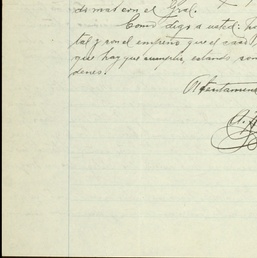 demas con el Gral.
Como digo a usted: 
tal y con el empeño que el caso
que hay que cumplir, estando
denes.
Atentamen